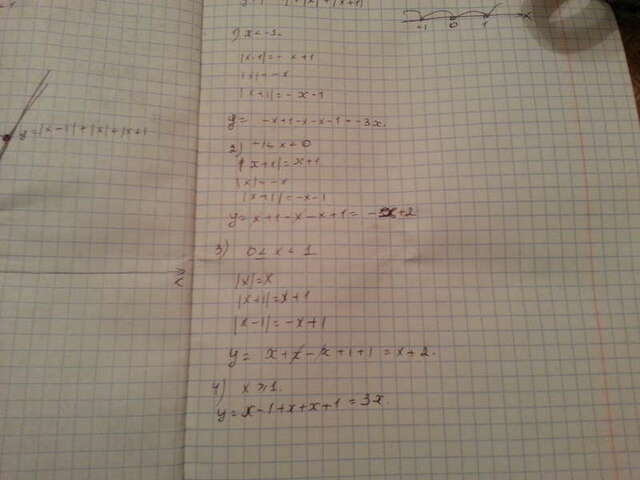 -1 0 1 x
1) x < -1
|x-1| = -x+1
|x| = -x
|x+1| = -x-1
y = -x+1-x-x-1 = -3x.
y = |x-1|+|x|+|x+1|
2) -1 ≤ x < 0
|x+1| = x+1
|x| = -x
|x+1| = -x-1
y = x+1-x-x+1 = -x+2
3) 0 ≤ x < 1
|x| = x
|x+1| = x+1
|x-1| = -x+1
y = x+x-x+1+1 = x+2.
4) x ≥ 1.
y = x-1+x+x+1 = 3x.